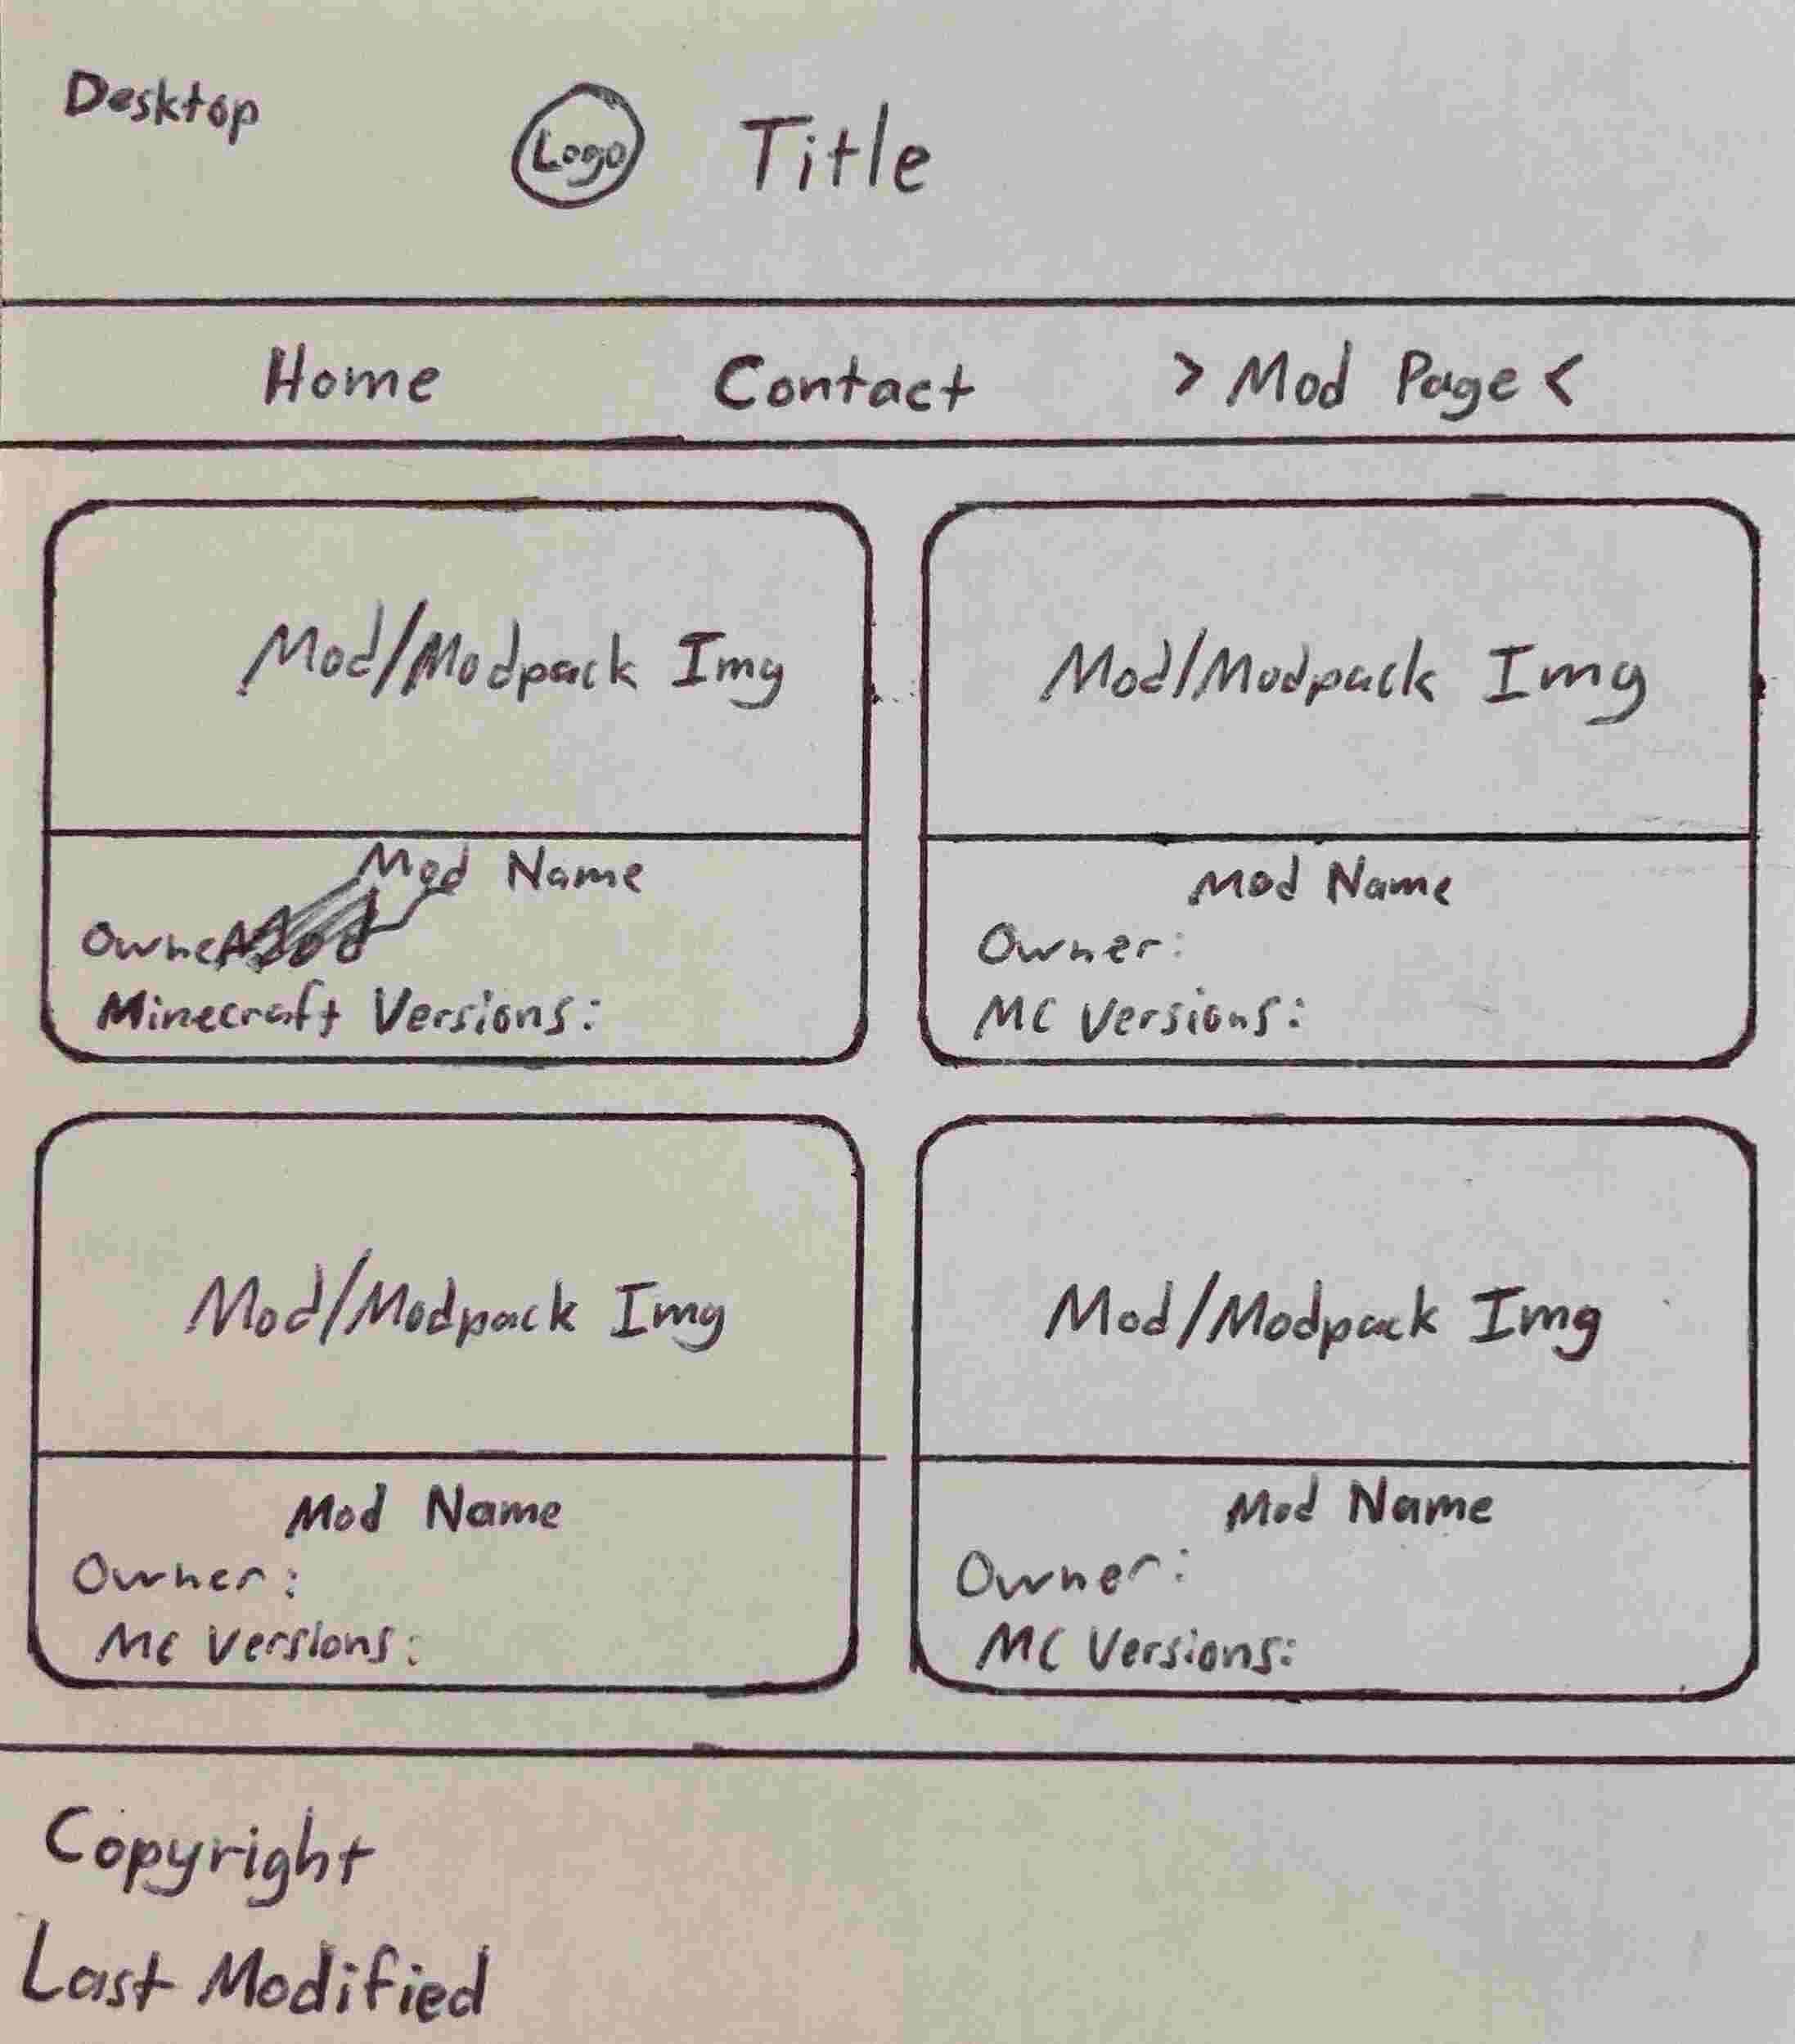 Desktop
Logo
Title
Home Contact > Mod Page <
Mod/Modpack Img
Mod Name
Minecraft Versions:
Mod/Modpack Img
Mod Name
Owner:
MC Versions:
Mod/Modpack Img
Mod Name
Owner:
MC Versions:
Mod/Modpack Img
Mod Name
Owner:
MC Versions:
Copyright
Last Modified